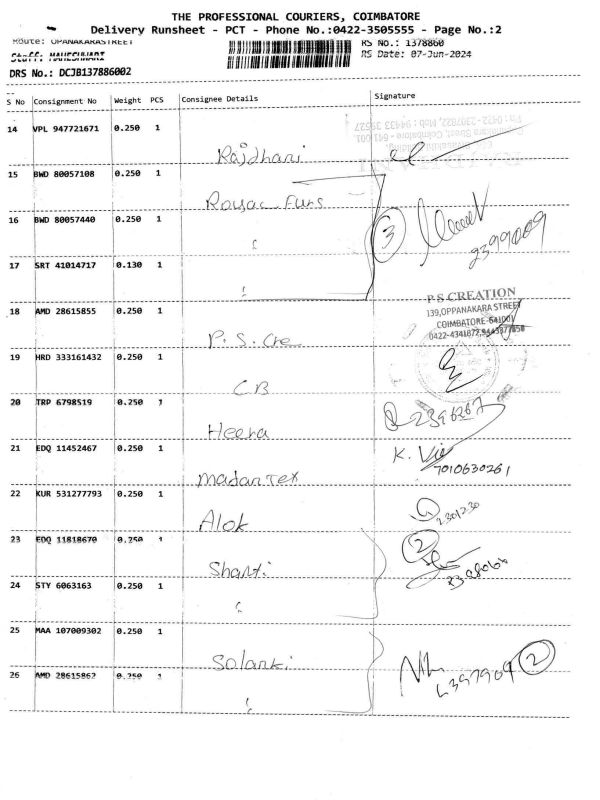 THE PROFESSIONAL COURIERS, COIMBATORE
Delivery Runsheet - PCT - Phone No.:0422-3505555 - Page No.:2
Route: OPANAKARASTREET
RS No.: 1378860
Staff: MAHESHWARI
RS Date: 07-Jun-2024
DRS No.: DCJB137886002
S No Consignment No Weight PCS Consignee Details Signature
14 VPL 947721671 0.250 1 Rajdhani
15 BWD 80057108 0.250 1
16 BWD 80057440 0.250 1 3
17 SRT 41014717 0.130 1
P.S.CREATION
139,OPPANAKARA STREET
COIMBATORE-641001
18 AMD 28615855 0.250 1 P. S. Cre
19 HRD 333161432 0.250 1 CB
20 TRP 6798519 0.250 1 Heera
21 EDQ 11452467 0.250 1 Madan Tex K.
7010630261
22 KUR 531277793 0.250 1 Alok
23 EDQ 11818670 0.250 1 Shanti 2
24 STY 6063163 0.250 1
25 MAA 107009302 0.250 1 Solanki
26 AMD 28615862 0.250 1 2